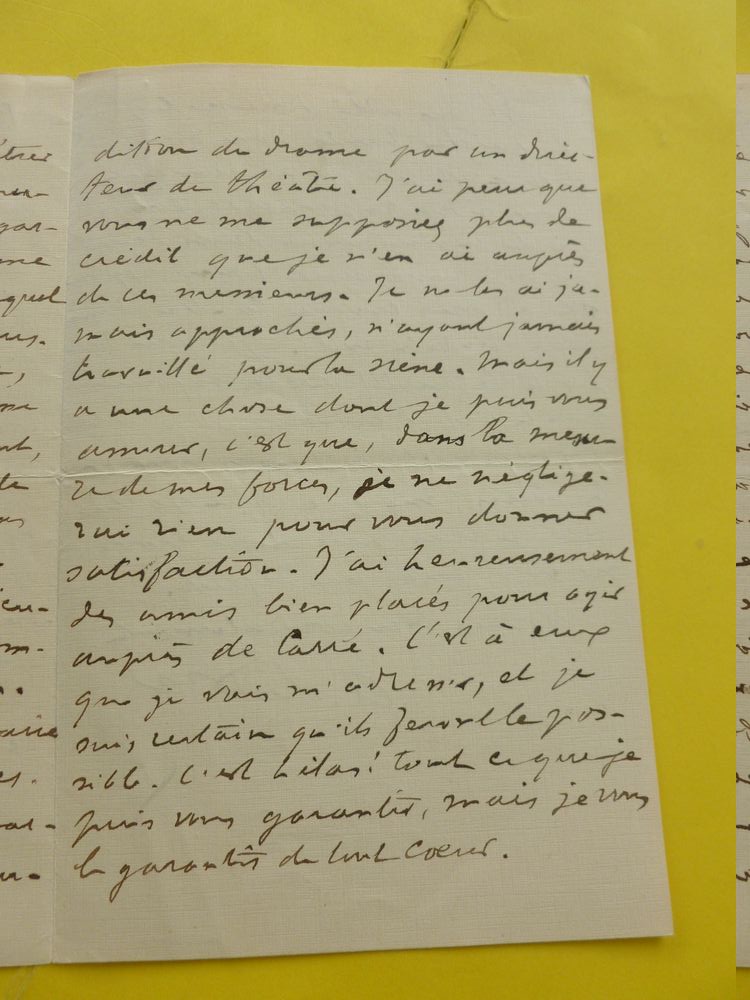 dition du drame par un direc-
teur de théâtre. J'ai peur que
vous ne me supposiez plus de
crédit que je n'en ai auprès
de ces messieurs. Je ne les ai ja-
mais approchés, n'ayant jamais
travaillé pour la scène. Mais il y
a une chose dont je puis vous
assurer, c'est que, dans la mesu-
re de mes forces, je ne néglige-
rai rien pour vous donner
satisfaction. J'ai heureusement
des amis bien placés pour agir
auprès de Carré. C'est à eux
que je vais m'adresser, et je
suis certain qu'ils feront le pos-
sible. C'est hélas! tout ce que je
puis vous garantir, mais je vous
le garantis de tout coeur.